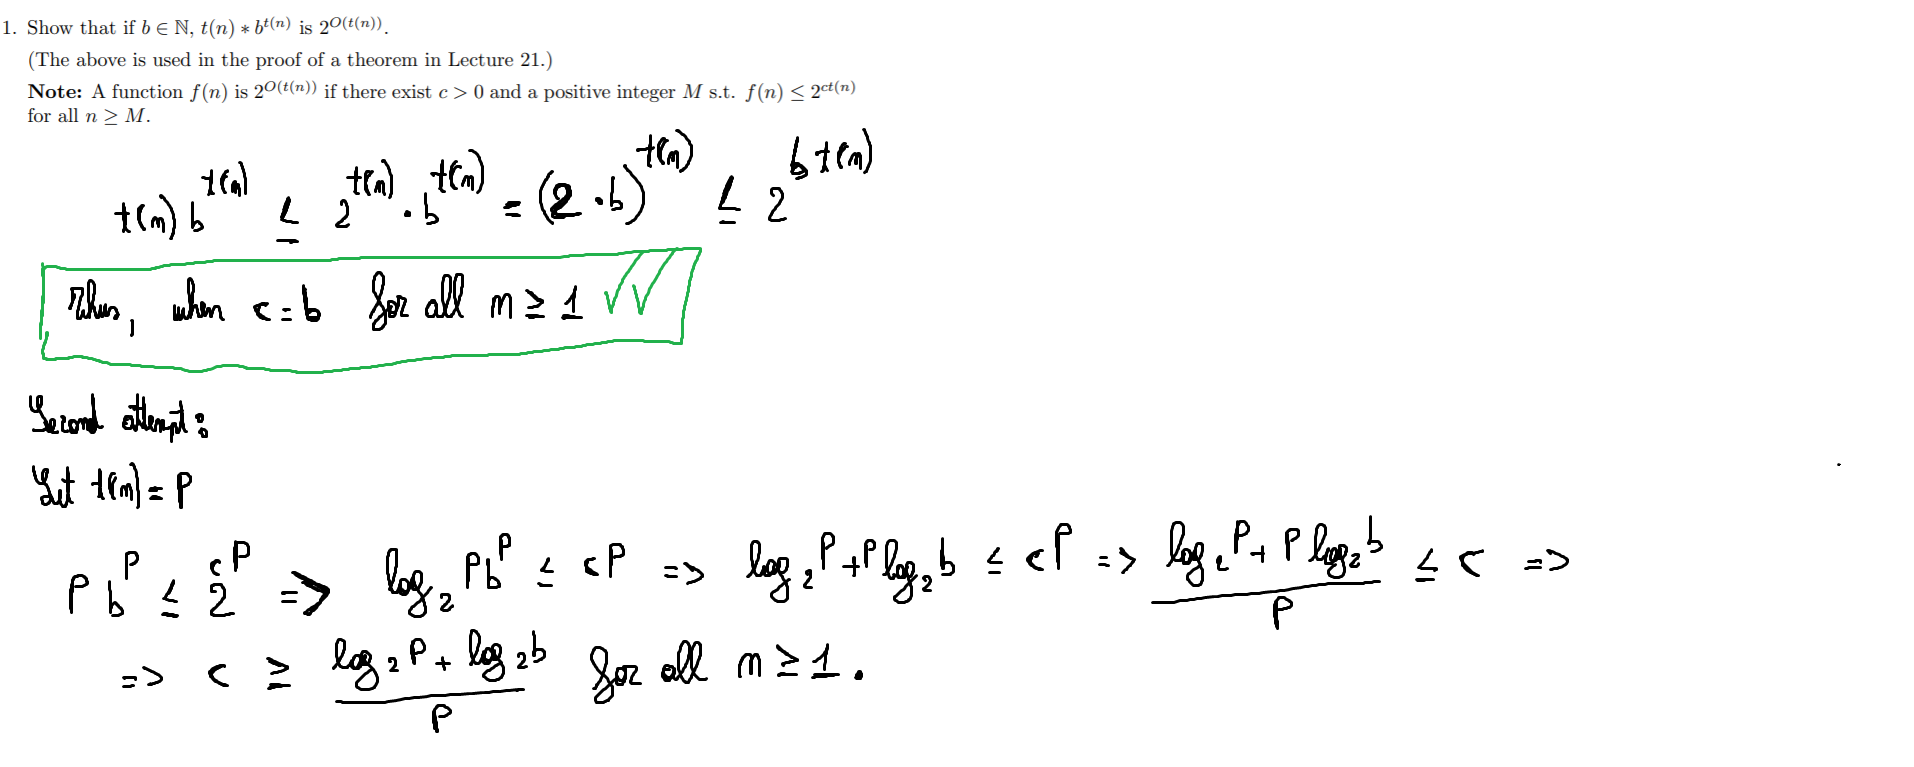 1. Show that if b ∈ ℕ, t(n) ∗ b^{t(n)} is 2^{O(t(n))}.
(The above is used in the proof of a theorem in Lecture 21.)
Note: A function f(n) is 2^{O(t(n))} if there exist c > 0 and a positive integer M s.t. f(n) ≤ 2^{ct(n)}
for all n ≥ M.
t(n) b^{t(n)} ≤ 2^{t(n)} · b^{t(n)} = (2 · b)^{t(n)} ≤ 2^{b t(n)}
Thus, when c = b for all n ≥ 1 ✓✓
Second attempt:
Let t(n) = P
P b^P ≤ 2^{cP} => log₂ P b^P ≤ cP => log₂ P + P log₂ b ≤ cP => (log₂ P + P log₂ b)/P ≤ c =>
=> c ≥ (log₂ P + log₂ b)/P for all n ≥ 1.